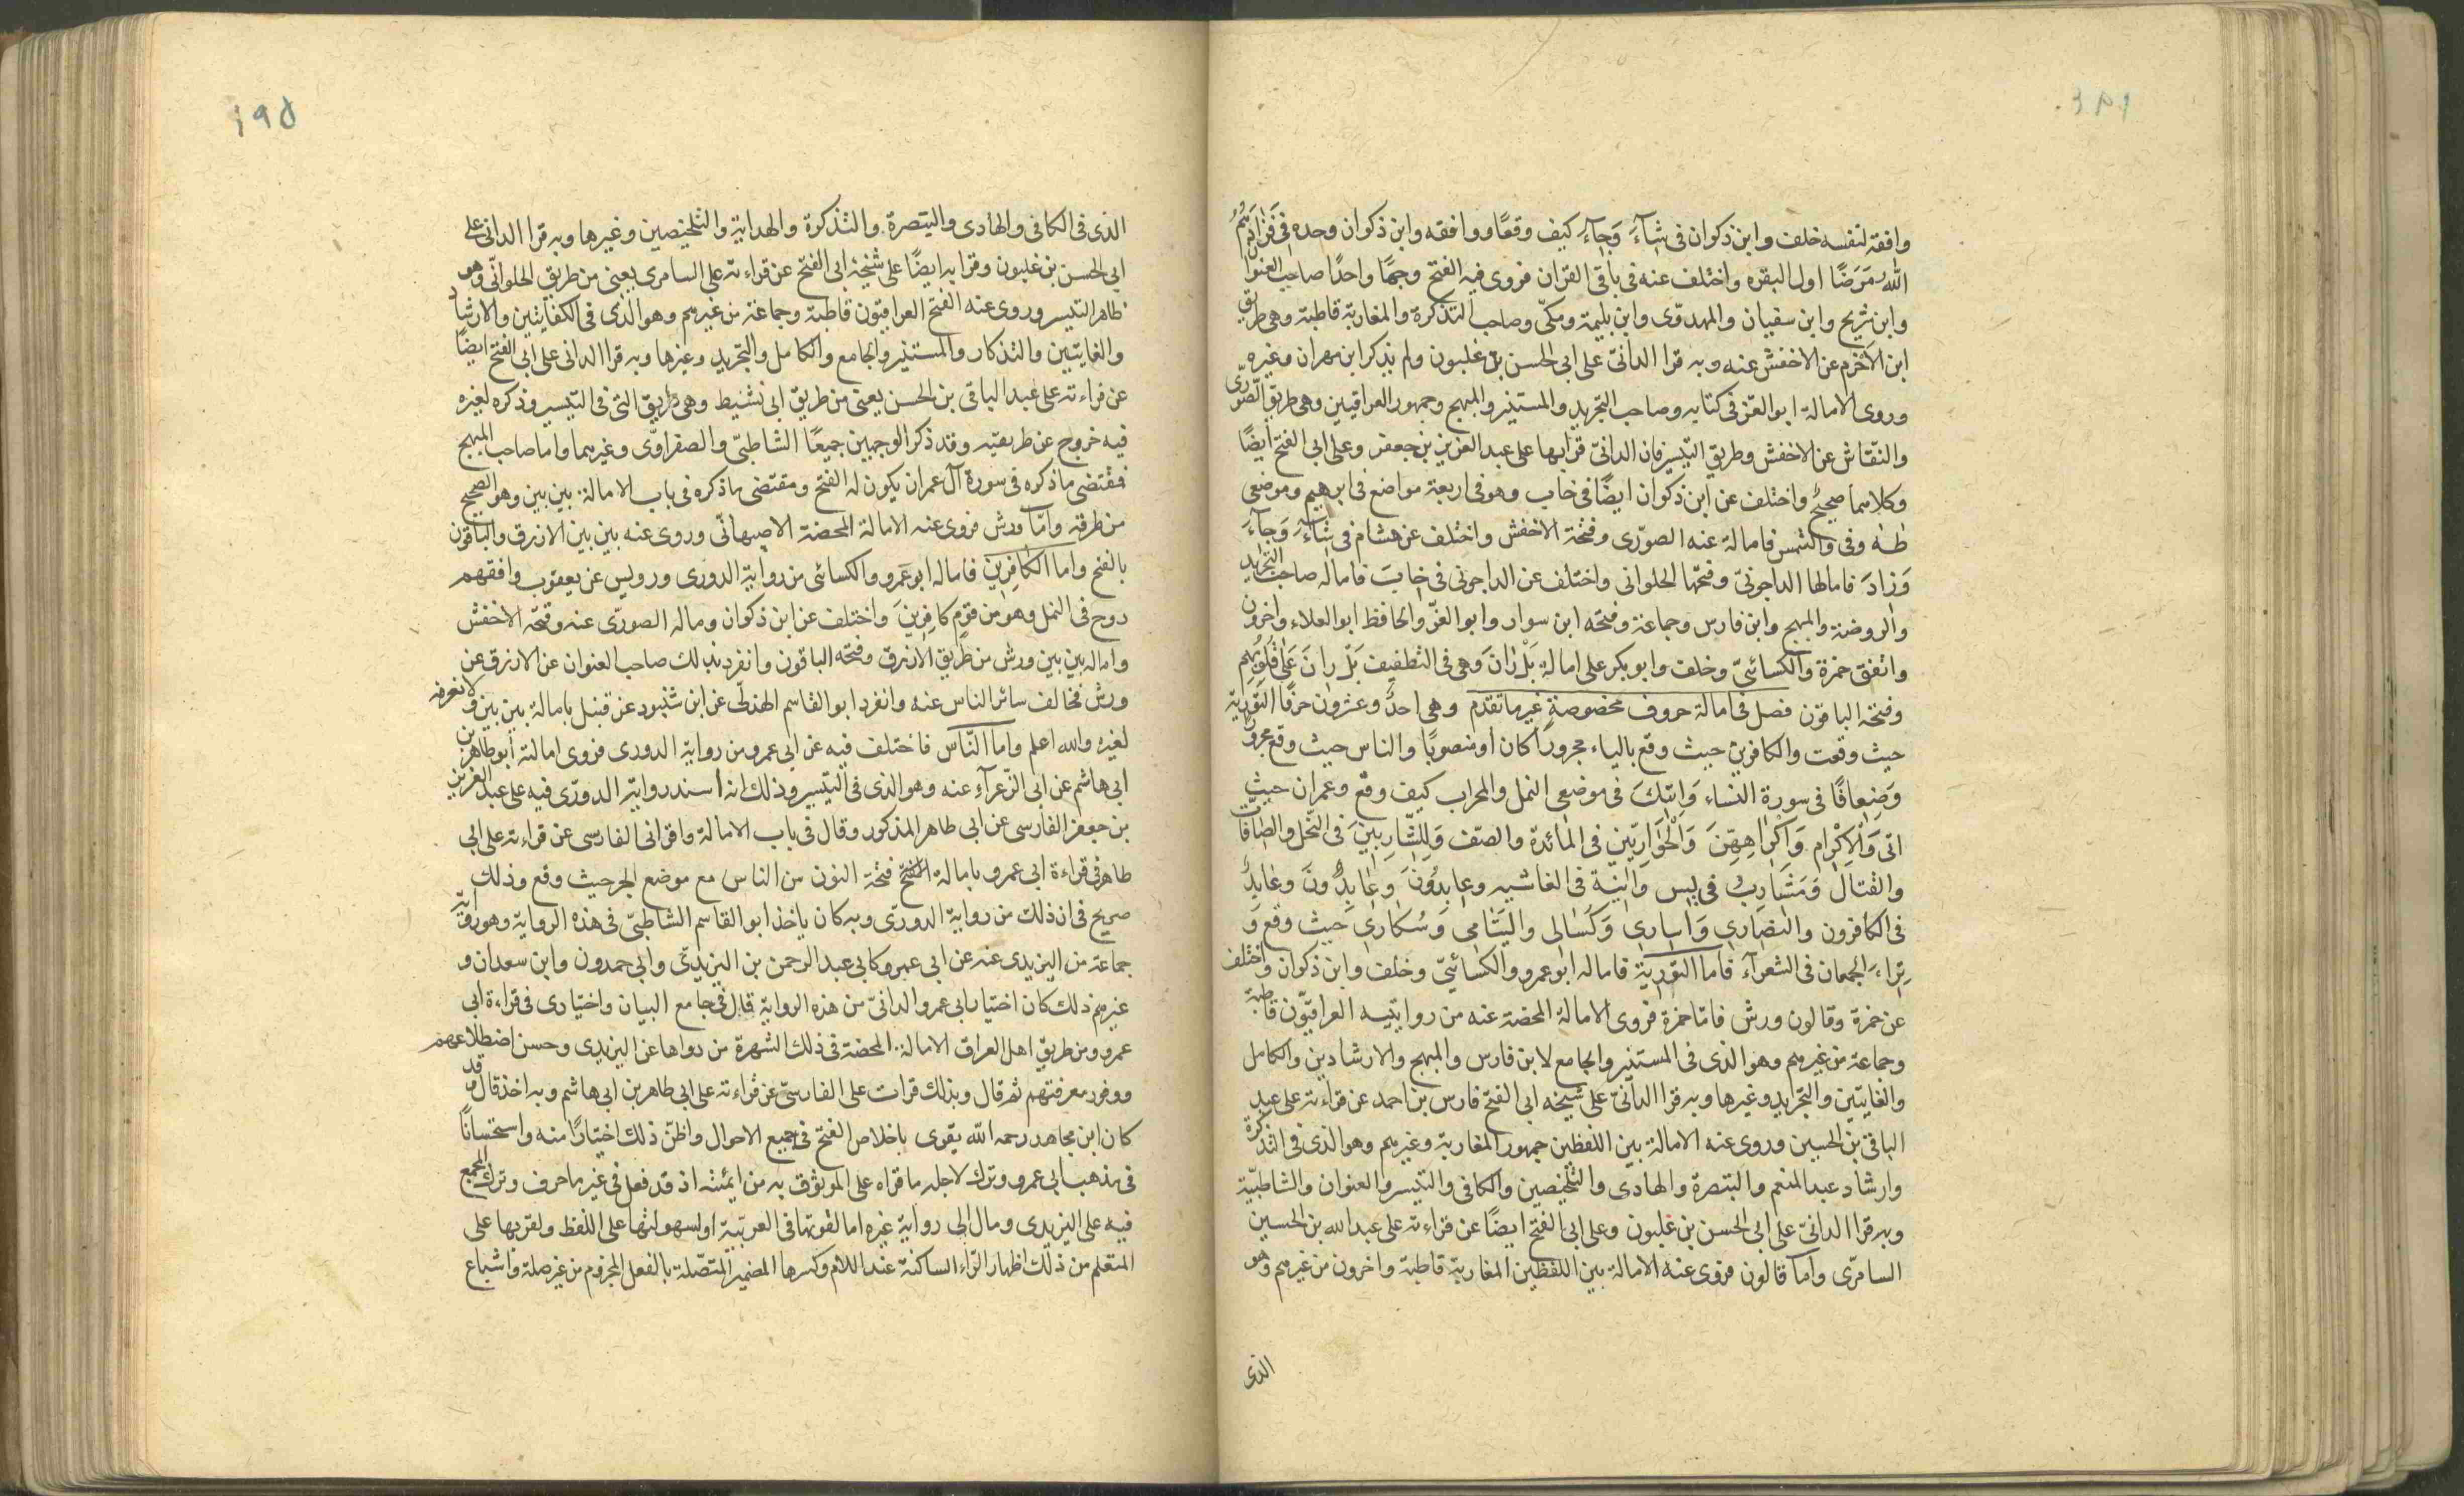 وافقه لنفسه خلف وابن ذكوان في شآءَ وَجآءَ كيف وقعًا ووافقه وابن ذكوان وحده في فَزادَهُمُ
اللهُ مَرَضًا اول البقره واختلف عنه في باقى القران فروى فيه الفتح وجهًا واحدًا صاحب العنوان
وابن شريح وابن سفيان والمهدوّى وابن بليمة ومكّى وصاحب التذكرة والمغاربة قاطبة وهى طريق
ابن الاخرم عن الاخفش عنه وبه قرا الدانىّ على ابى الحسن بن غلبون ولم يذكر ابن مهران وغيره
وروى الامالة ابو العزّ فى كتابيه وصاحب التجريد والمستنير والمبهج وجمهور العراقيين وهى طريق الصّورّى
والنقاش عن الاخفش وطريق التّيسير فان الدانىّ قرا بها على عبد العزيز بن جعفر وعلى ابى الفتح ايضًا
وكلاهما صحيحٌ واختلف عن ابن ذكوان ايضًا فى خاب وهو فى اربعة مواضع فى ابرهيم وموضعى
طٰهٰ وفى والشمس فاماله عنه الصوّرى وفتحة الاخفش واختلف عن هشام فى شآءَ وَجآءَ
وَزادَ فامالها الداجونىّ وفتحها الحلوانى واختلف عن الداجونى فى خابَ فاماله صاحب التجريد
والروضة والمبهج وابن فارس وجماعة وفتحه ابن سوار وابو العزّ والحافظ ابو العلاء واخرون
واتفق حمزة والكسائىّ وخلف وابو بكر على امالة بَلْ رانَ وهى فى التطفيف بَلْ رانَ عَلىٰ قُلُوبِهِمْ
وفتحه الباقون فصل فى امالة حروف مخصوصة غير ما تقدّم وهى احدٌ وعشرون حرفًا التّورٰية
حيث وقعت والكافرين حيث وقع بالياء مجرورًا كان او منصوبًا والناس حيث وقع مجرورًا
وَضِعافًا فى سورة النساء وَاتيكَ فى موضعى النمل والمحراب كيف وقع وعمران حيث
اتى وَالْاِكْرام وَاكْراهِهِنَ وَالْحَوارِيّين فى المائدة والصّف وَلِلشّارِبينَ فى النّحل والصّافات
والقتال وَمَشارِبُ فى يٰس وَاٰنِيَة فى الغاشيه وعابِدُونَ وعابِدُونَ وعابِدٌ
فى الكافرون والنصارى وَاسارى وَكُسالى واليَتامى وَسُكارى حيث وقع وَ
تراءَ الجمعان فى الشعرآء فاما التّوريٰة فاماله ابو عمرو والكسائىّ وخلف وابن ذكوان واختلف
عن حمزة وقالون ورش فامّا حمزة فروى الامالة المحضة عنه من روايتيه العراقيّون قاطبة
وجماعة من غيرهم وهو الذى فى المستنير والجامع لابن فارس والمبهج والارشادين والكامل
والغايتين والتجريد وغيرها وبه قرا الدانىّ على شيخه ابى الفتح فارس بن احمد عن قراءته على عبد
الباقى بن الحسين وروى عنه الامالة بين اللفظين جمهور المغاربة وغيرهم وهو الذى فى التذكرة
وارشاد عبد المنعم والتبصرة والهادى والتلخيصين والكافى والتيسير والعنوان والشاطبيّة
وبه قرا الدانىّ على ابى الحسن بن غلبون وعلى ابى الفتح ايضًا عن قراءته على عبد الله بن الحسين
السامرّى واما قالون فروى عنه الامالة بين اللفظين المغاربة قاطبة واخرون من غيرهم وهو
الذى
١٩٥
الذى فى الكافى والهادى والتبصرة والتذكرة والهداية والتلخيصين وغيرها وبه قرا الدانى على
ابى الحسن بن غلبون وقرا به ايضًا على شيخه ابى الفتح عن قراءته على السامرى يعنى من طريق الحلوانّى وهو
ظاهر التيسير وروى عنه الفتح العراقيّون قاطبة وجماعة من غيرهم وهو الذى فى الكفايتين والارشاد
والغايتين والتذكار والمستنير والجامع والكامل والتجريد وغيرها وبه قرا الدانى على ابى الفتح ايضًا
عن قراءته على عبد الباقى بن الحسن يعنى من طريق ابى نشيط وهى طريق التى فى التيسير وذكره لغيره
فيه خروج عن طريقته وقد ذكر الوجهين جميعًا الشاطبىّ والصفراوّى وغيرهما واما صاحب المبهج
فمقتضى ماذكره فى سورة آل عمران يكون له الفتح ومقتضى ماذكره فى باب الامالة بين بين وهو الصحيح
من طرقه وامّا ورش فروى عنه الامالة المحضة الاصبهانّى وروى عنه بين بين الازرق والباقون
بالفتح واما الكافِرين فاماله ابو عَمرو والكسائى من رواية الدورى ورويس عن يعقوب وافقهم
روح فى النمل وهو من قومٍ كافِرينَ واختلف عن ابن ذكوان وماله الصورّى عنه وفتحّه الاخفش
واماله بين بين ورش من طريق الازرق وفتحه الباقون وانفرد بذلك صاحب العنوان عن الازرق عن
ورش فخالف سائر الناس عنه وانفرد ابو القاسم الهذلّى عن ابن شنبود عن قنبل بامالة بين بين ولا نعرفه
لغيره والله اعلم واما النّاس فاختلف فيه عن ابى عمرو من رواية الدورى فروى امالته ابو طاهر بن
ابى هاشم عن ابى الزّعرآء عنه وهو الذى فى التيسير وذلك انه اسند رواية الدورّى فيه على عبد العزيز
بن جعفر الفارسى عن ابى طاهر المذكور وقال فى باب الامالة واقرانى الفارسى عن قراءته على ابى
طاهر فى قراءة ابى عمرو بامالة الفتح فتحة النون من الناس مع موضع الجر حيث وقع وذلك
صريح فى ان ذلك من رواية الدورى وبه كان ياخذ ابو القاسم الشاطبىّ فى هذه الرواية وهو رواية
جماعة من اليزيدى عنه عن ابى عمرو كابى عبد الرحمن بن اليزيدّى وابى حمدون وابن سعدان و
غيرهم ذلك كان اختيار ابى عمرو الدانىّ من هذه الرواية قال فى جامع البيان واختيارى فى قراءة ابى
عمرو ومن طريق اهل العراق الامالة المحضة فى ذلك الشهرة من رواها عن اليزيدى وحسن اضطلاعهم
ووفور معرفتهم ثم قال وبذلك قرات على الفارسىّ عن قراءته على ابى طاهر بن ابى هاشم وبه اخذ قال وقد
كان ابن مجاهد رحمه الله يقوى باخلاص الفتح فى جميع الاحوال واظنّ ذلك اختيارًا منه واستحسانًا
فى مذهب ابى عمرو وترك لاجله ما قراه على الموثوق به من ايمّته اذ قد فعل فى غير ما حرف وترك المجمع
فيه على اليزيدى ومال الى رواية غيره اما لقوتها فى العربّية او لسهولتها على اللفظ ولقربها على
المتعلم من ذلك اظهار الرّاء الساكنة عند اللام وكسرها المضمير المتصّلة بالفعل المجزوم من غير صلة واشباع